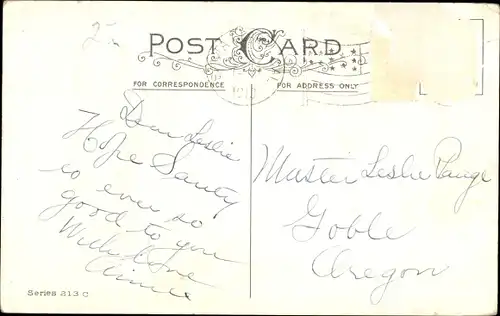 2-
POST CARD
FOR CORRESPONDENCE
FOR ADDRESS ONLY
Dear Leslie
Hope Santy
is ever so
good to you
With Love
Aimee
Master Leslie Pauge
Goble
Oregon
Series 213 C